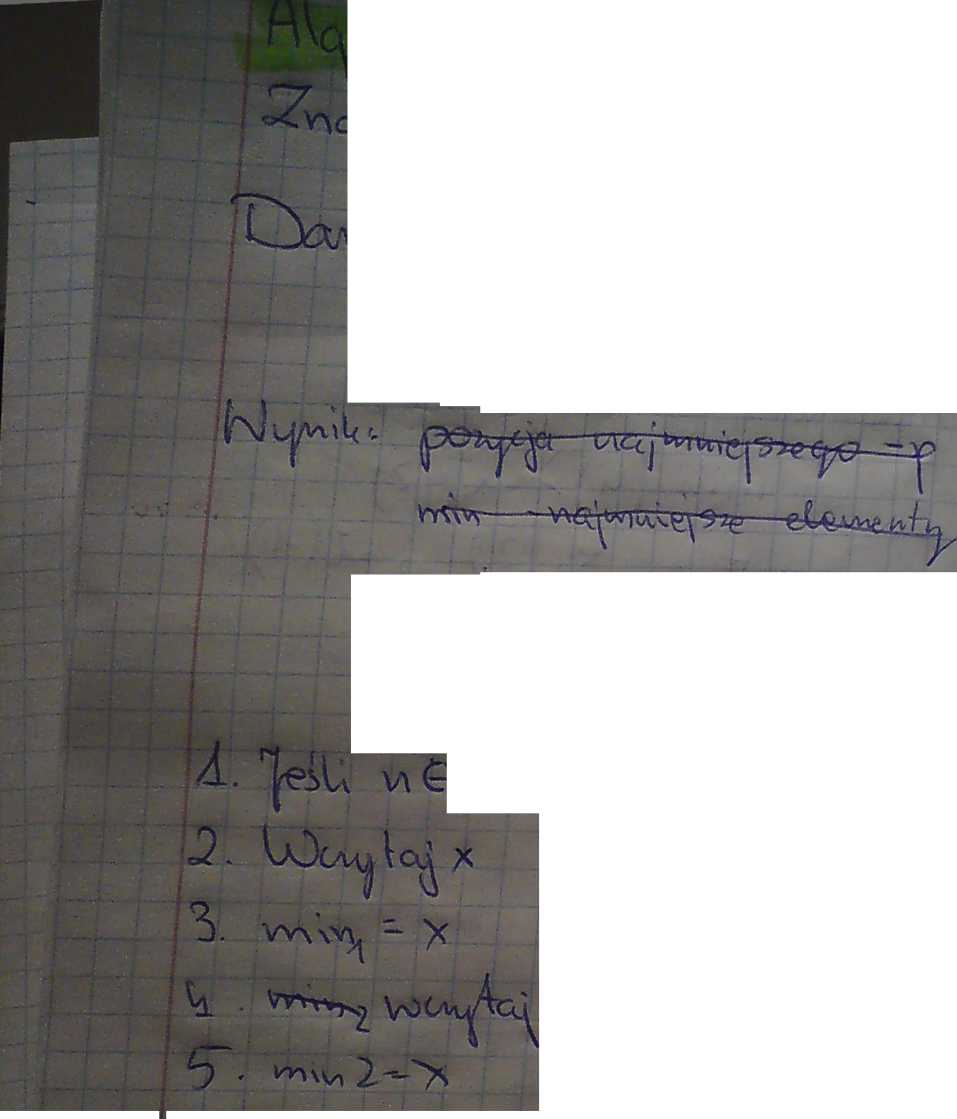 Alg
Zna
Dan
Wynik: pozycja najmniejszego - p
min - najmniejsze elementy
1. Jeśli n ∈
2. Wczytaj x
3. min1 = x
4. min2 wczytaj
5. min2 = x